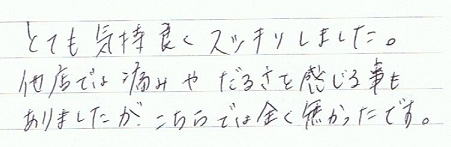 とても気持良くスッキリしました。
他店では痛みやだるさを感じる事も
ありましたが、こちらでは全く無かったです。